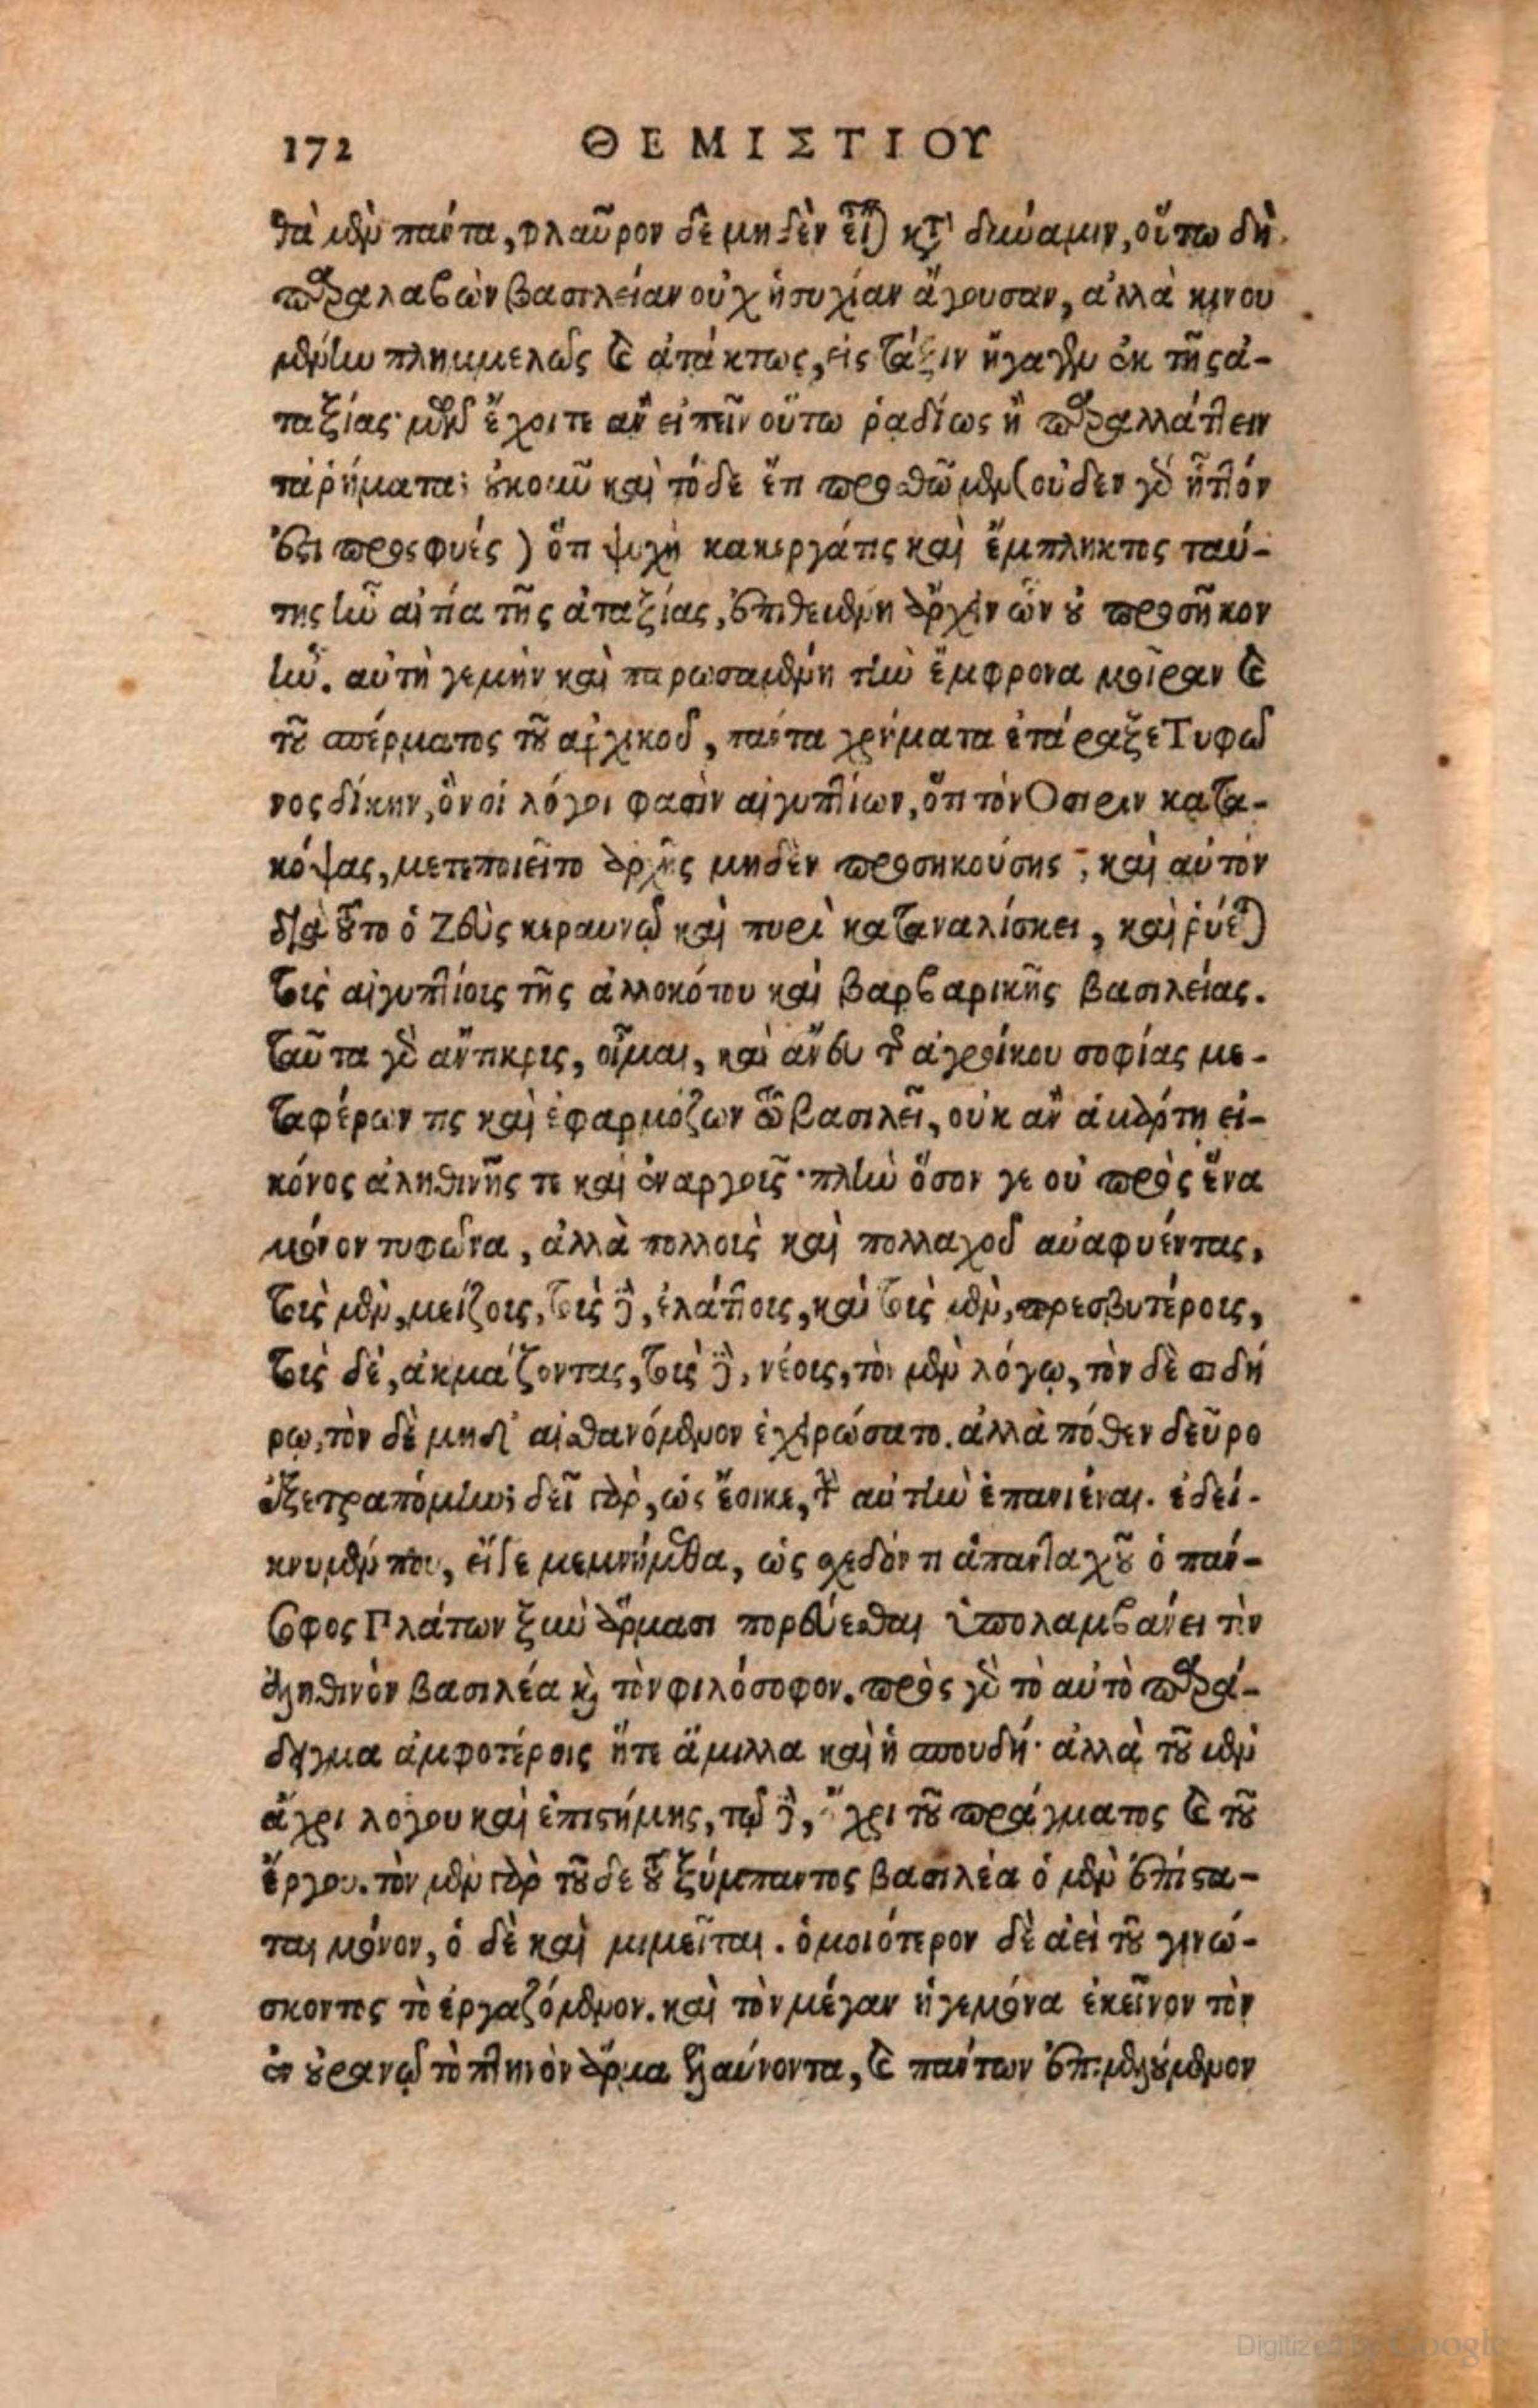 172 ΘΕΜΙΣΤΙΟΥ
θὰ μὲν πάντα, φλαῦρον δὲ μηδὲν εἶναι κατὰ δύναμιν, οὕτω δὴ
παραλαβὼν βασιλείαν οὐχ ἡσυχίαν ἄγουσαν, ἀλλὰ κινου
μένην πλημμελῶς καὶ ἀτάκτως, εἰς τάξιν ἤγαγεν ἐκ τῆς ἀ-
ταξίας· ἔχοιτε ἂν εἰπεῖν οὕτω ῥαδίως ἢ παραλλάττειν
τὰ ῥήματα; οὐκοῦν καὶ τόδε ἔτι προσθῶμεν (οὐδὲν γὰρ ἧττόν
ἐστι προσφυές) ὅτι ψυχὴ κακεργάτις καὶ ἔμπληκτος ταύ-
της ἦν αἰτία τῆς ἀταξίας, ἐπιθεμένη ἄρχειν ὧν οὐ προσῆκον
ἦν. αὐτὴ γε μὴν καὶ παρωσαμένη τὴν ἔμφρονα μοῖραν καὶ
τοῦ σπέρματος τοῦ ἀρχικοῦ, πάντα χρήματα ἐτάραξε Τυφῶ
νος δίκην, ὃν οἱ λόγοι φασὶν αἰγυπτίων, ὅτι τὸν Οσιριν κατα-
κόψας, μετεποιεῖτο ἀρχῆς μηδὲν προσηκούσης, καὶ αὐτὸν
διὰ τοῦτο ὁ Ζεὺς κεραυνῷ καὶ πυρὶ καταναλίσκει, καὶ ῥύεται
τοὺς αἰγυπτίους τῆς ἀλλοκότου καὶ βαρβαρικῆς βασιλείας.
ταῦτα γὰρ ἄντικρις, οἶμαι, καὶ ἄνευ τῆς ἀγροίκου σοφίας με-
ταφέρων τις καὶ ἐφαρμόζων τῷ βασιλεῖ, οὐκ ἂν ἁμάρτῃ εἰ-
κόνος ἀληθινῆς τε καὶ ἐναργοῦς· πλὴν ὅσον γε οὐ πρὸς ἕνα
μόνον τυφῶνα, ἀλλὰ πολλοὺς καὶ πολλαχοῦ ἀναφυέντας,
τοὺς μὲν, μείζους, τοὺς δὲ, ἐλάττους, καὶ τοὺς μὲν, πρεσβυτέρους,
τοὺς δὲ, ἀκμάζοντας, τοὺς δὲ, νέους, τὸν μὲν λόγῳ, τὸν δὲ σιδή
ρῳ, τὸν δὲ μηδ' αἰσθανόμενον ἐχειρώσατο. ἀλλὰ πόθεν δεῦρο
ἐξετραπόμην; δεῖ γὰρ, ὡς ἔοικε, τὴν αὐτὴν ἐπανιέναι. ἐδεί-
κνυμέν που, εἴγε μεμνήμεθα, ὡς σχεδόν τι ἁπανταχοῦ ὁ πάν-
σοφος Πλάτων ξὺν ἅρμασι πορεύεσθαι ὑπολαμβάνει τὸν
ἀληθινὸν βασιλέα καὶ τὸν φιλόσοφον. πρὸς γὰρ τὸ αὐτὸ παρά-
δειγμα ἀμφοτέροις ἥτε ἅμιλλα καὶ ἡ σπουδή· ἀλλὰ τοῦ μὲν
ἄχρι λόγου καὶ ἐπιστήμης, τῷ δὲ, ἄχρι τοῦ πράγματος καὶ τοῦ
ἔργου. τὸν μὲν γὰρ τοῦδε τοῦ ξύμπαντος βασιλέα ὁ μὲν ἐπίστα-
ται μόνον, ὁ δὲ καὶ μιμεῖται. ὁμοιότερον δὲ ἀεὶ τοῦ γινώ-
σκοντος τὸ ἐργαζόμενον. καὶ τὸν μέγαν ἡγεμόνα ἐκεῖνον τὸν
ἐν οὐρανῷ τὸ πτηνὸν ἅρμα ἐλαύνοντα, καὶ πάντων ἐπιμελούμενον
Digitized by Google